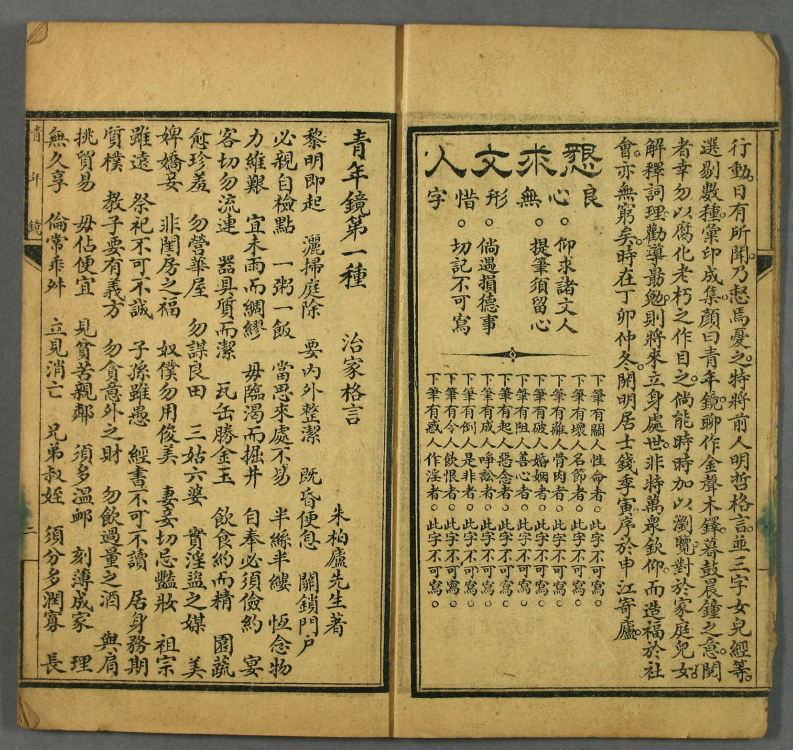 行動日有所聞乃愁焉憂之特將前人明哲格言並三字女兒經等
選剔數種彙印成集顏曰青年鏡聊作金聲木鐸暮鼓晨鐘之意閱
者幸勿以腐化老朽之作目之倘能時時加以瀏覽對於家庭兒女
解釋詞理勸導勗勉則將來立身處世非特萬衆欽仰而造福於社
會亦無窮矣時在丁卯仲冬開明居士錢季寅序於申江寄廬
懇求文人
良心無形惜字
仰求諸文人
提筆須留心
倘遇損德事
切記不可寫
下筆有關人性命者。此字不可寫。
下筆有壞人名節者。此字不可寫。
下筆有離人骨肉者。此字不可寫。
下筆有破人婚姻者。此字不可寫。
下筆有起人惡念者。此字不可寫。
下筆有阻人善心者。此字不可寫。
下筆有成人爭訟者。此字不可寫。
下筆有倒人是非者。此字不可寫。
下筆有令人飲恨者。此字不可寫。
下筆有惑人作淫者。此字不可寫。
青年鏡第一種 治家格言
朱柏廬先生著
黎明即起 灑掃庭除 要內外整潔 既昏便息 關鎖門戶
必親自檢點 一粥一飯 當思來處不易 半絲半縷 恆念物
力維艱 宜未雨而綢繆 毋臨渴而掘井 自奉必須儉約 宴
客切勿流連 器具質而潔 瓦缶勝金玉 飲食約而精 園蔬
愈珍羞 勿營華屋 勿謀良田 三姑六婆 實淫盜之媒 美
婢嬌妾 非閨房之福 奴僕勿用俊美 妻妾切忌豔妝 祖宗
雖遠 祭祀不可不誠 子孫雖愚 經書不可不讀 居身務期
質樸 教子要有義方 勿貪意外之財 勿飲過量之酒 與肩
挑貿易 毋佔便宜 見貧苦親鄰 須多溫卹 刻薄成家 理
無久享 倫常乖舛 立見消亡 兄弟叔姪 須分多潤寡 長
青年鏡
二